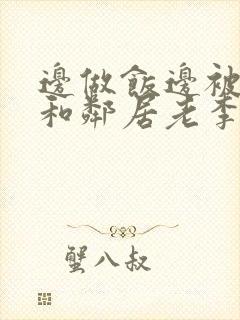 邊做飯邊被
和鄰居老李
蟹八叔